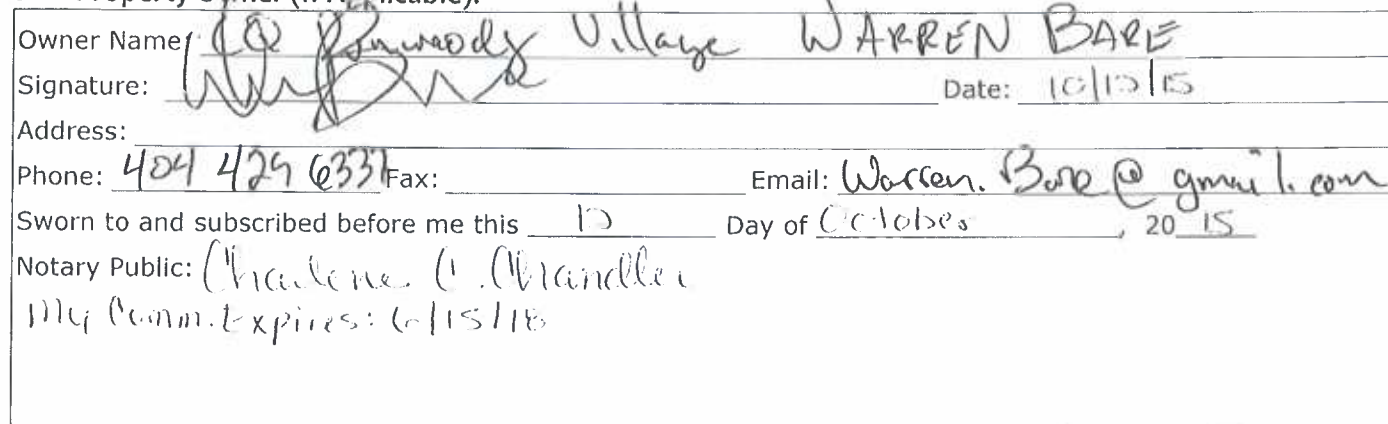 Property Owner (If Applicable):
Owner Name: Dunwoody Village WARREN BARE
Signature: Date: 10/13/15
Address:
Phone: 404 429 6337 Fax: Email: Warren.Bare@gmail.com
Sworn to and subscribed before me this 13 Day of October, 20 15
Notary Public: Charlene C. Chandler
My Comm. Expires: 6/15/18